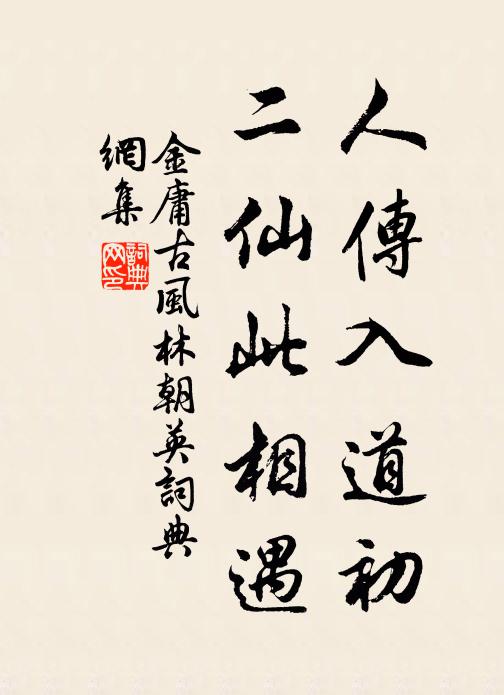 人傳入道初
二仙此相遇
金庸古風林朝英詞典
網集
詞典
网印